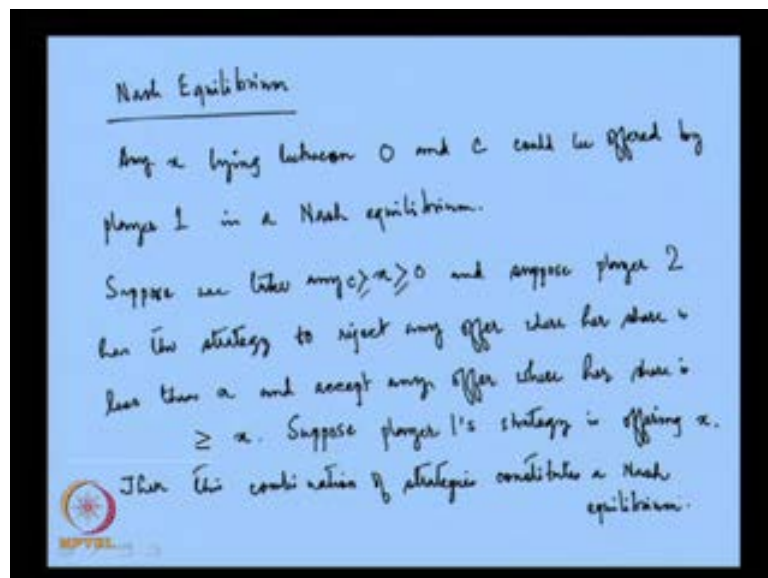 Nash Equilibrium
Any x lying between 0 and c could be offered by
player 1 in a Nash equilibrium.
Suppose we take any c ≥ x ≥ 0 and suppose player 2
has the strategy to reject any offer where her share is
less than x and accept any offer where her share is
≥ x. Suppose player 1's strategy is offering x.
Then this combination of strategies constitutes a Nash
equilibrium.
NPTEL